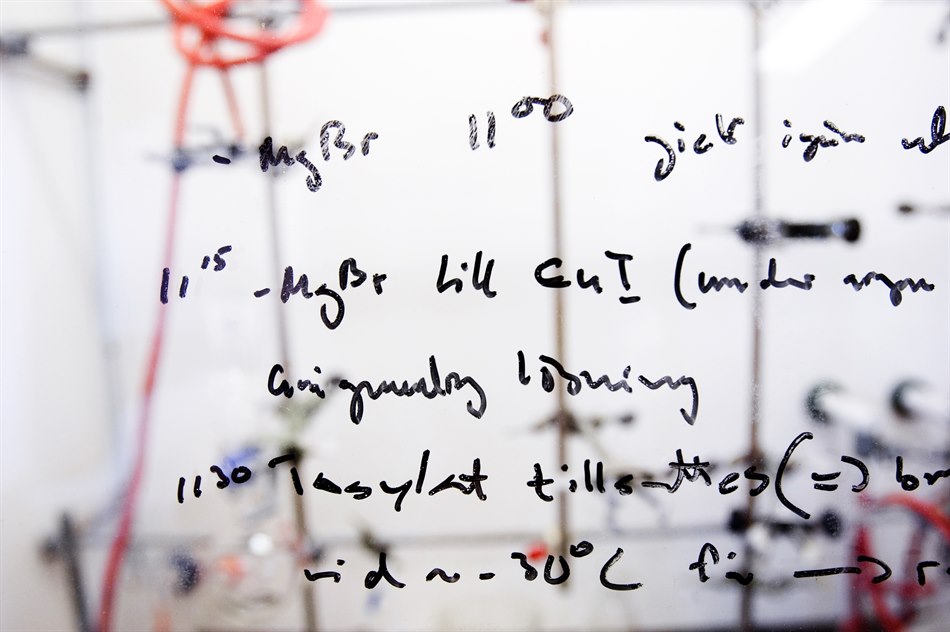 - MgBr 11 00 gick igen
11 15 - MgBr till CuI (under argon
lösning
11 30 Tosylat tillsattes (=)
vid ~ -30°C →